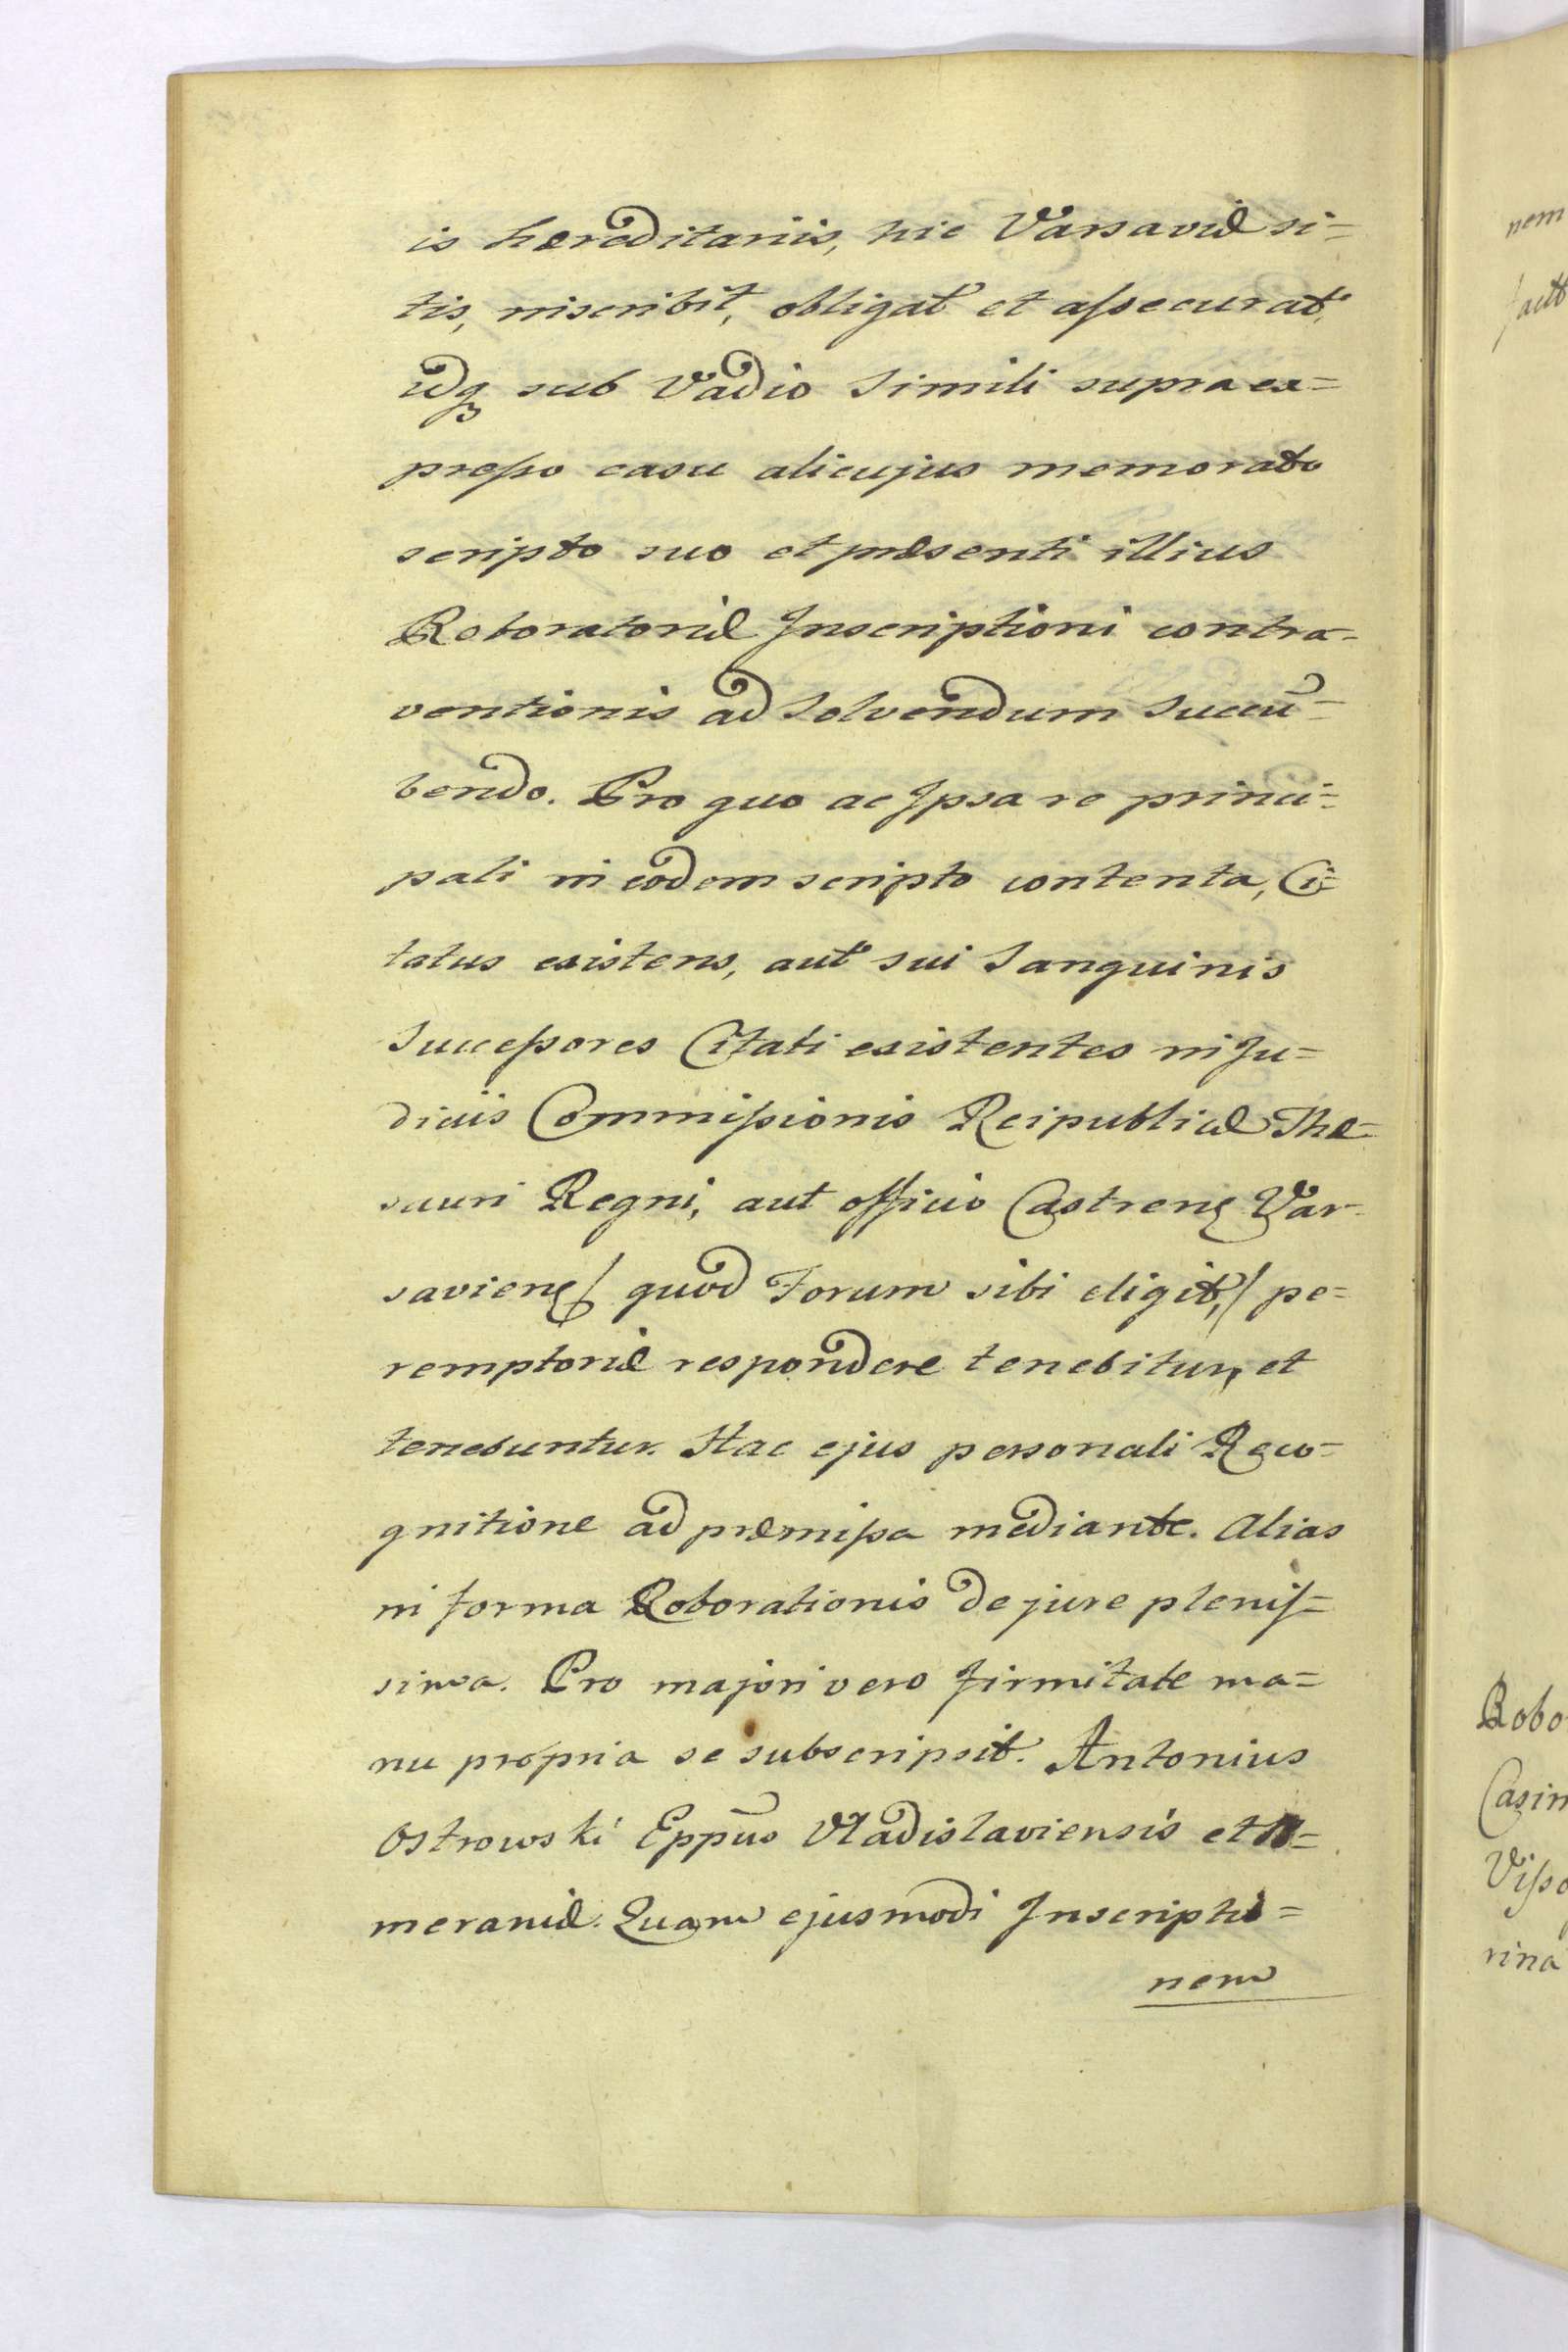 is hæreditariis, hic Varsaviæ si=
tis, inscribit, obligat et assecurat,
idq3 sub Vadio Simili supra ex=
presso casu alicujus memorato
scripto suo et præsenti illius
Roboratoriæ Inscriptioni contra-
ventionis ad Solvendum Succū=
bendo. Pro quo ac Ipsa re princi=
pali in eodem scripto contenta, Ci=
tatus existens, aut sui Sanguinis
Successores Citati existentes in Ju=
diciis Commissionis Reipublicæ The=
sauri Regni, aut officio Castrens Var-
saviens / quod Forum sibi eligit, / pe=
remptorie respondere tenebitur, et
tenebuntur. Hac ejus personali Reco=
gnitione ad præmissa mediante. Alias
in forma Roborationis de jure plenis=
sima. Pro majori vero firmitate ma=
nu propria se subscripsit. Antonius
Ostrowski Eppūs Vladislaviensis et
meraniæ. Quam ejusmodi Inscriptio=
nem
nem
Robo
Casim
Visso
rina